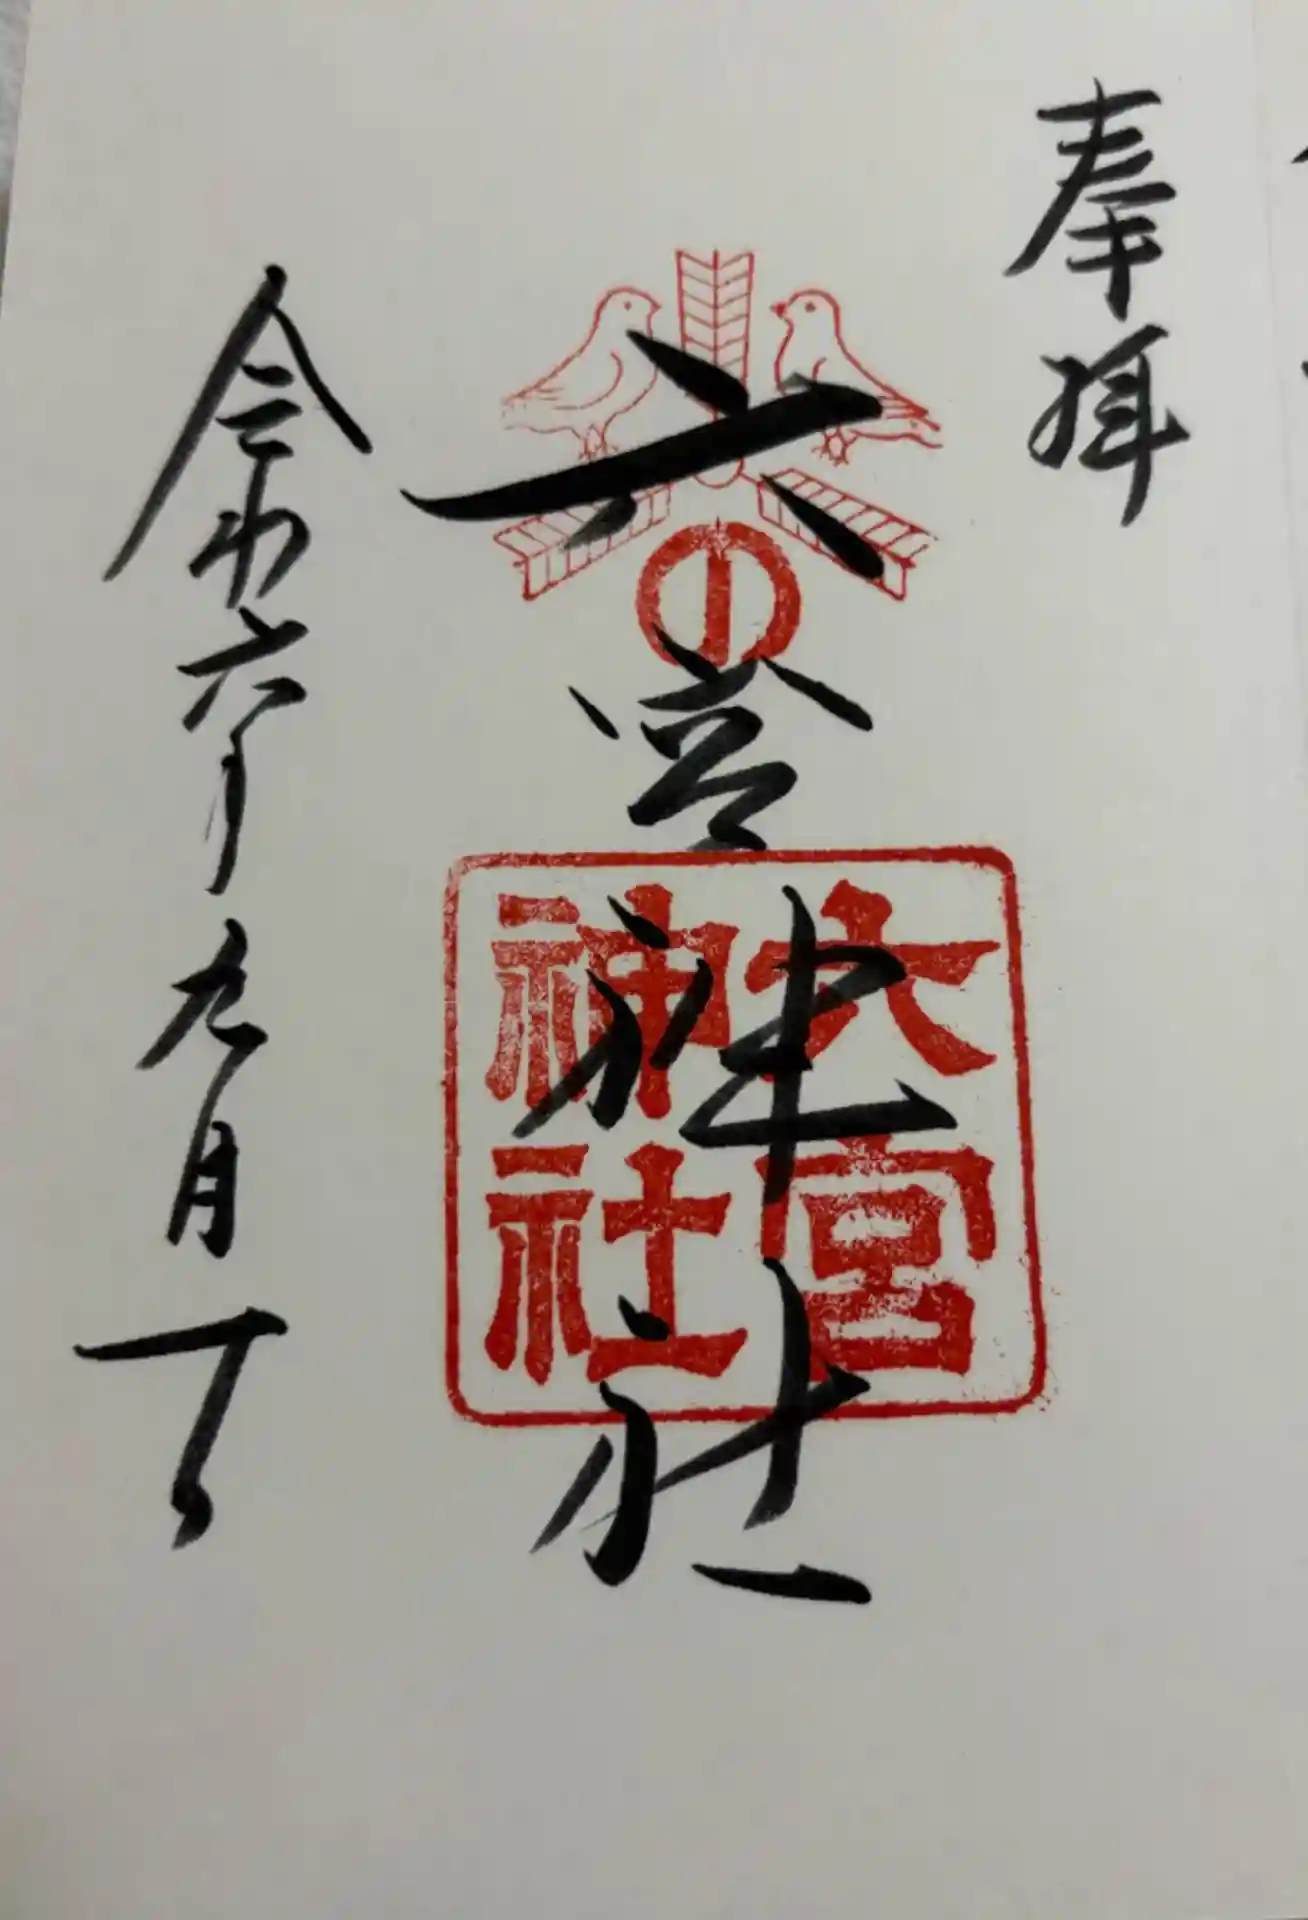 奉拝
六宮神社
六宮
神社
令和六年九月